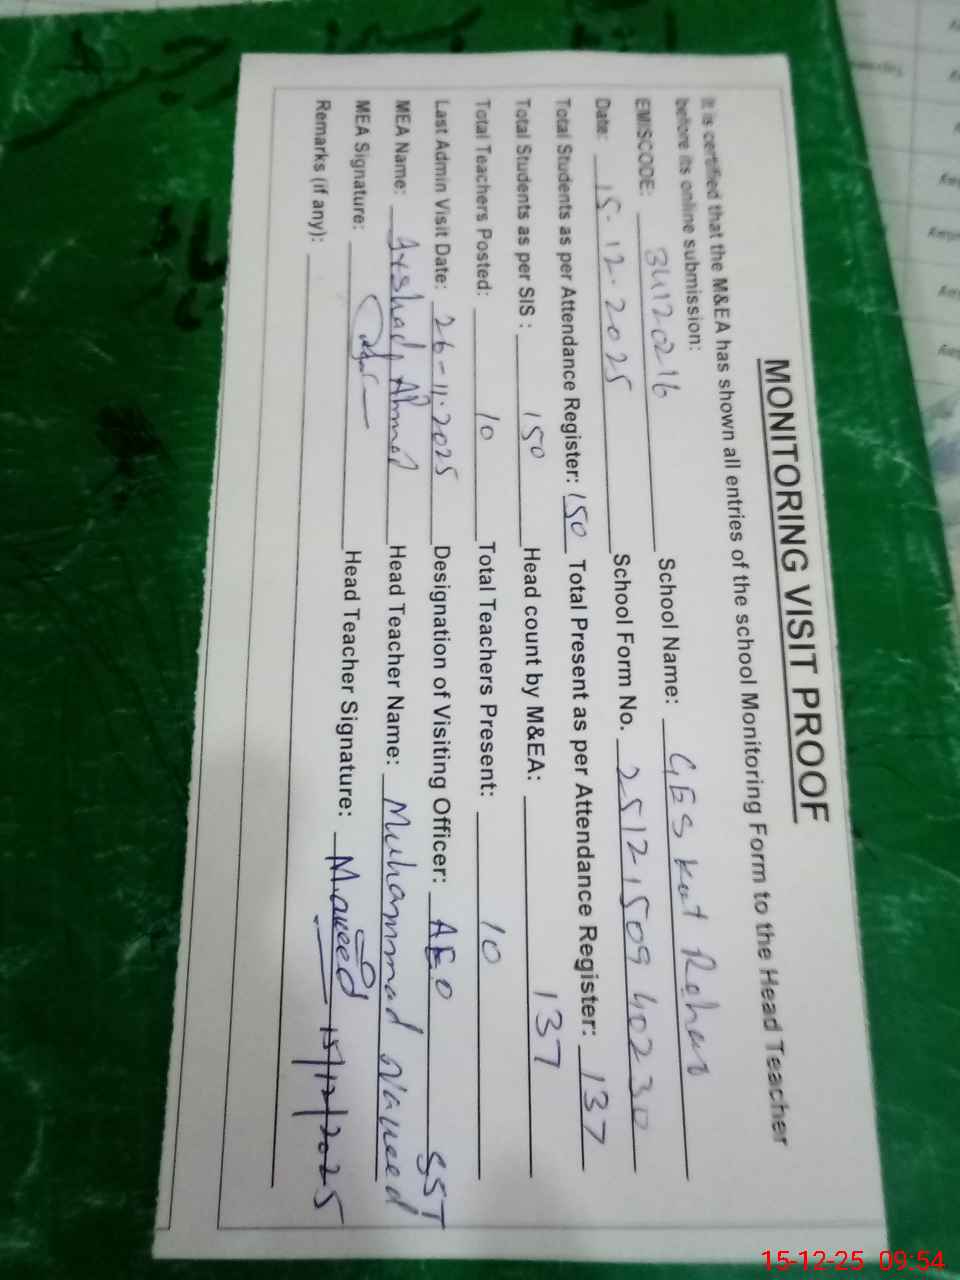 MONITORING VISIT PROOF
It is certified that the M&EA has shown all entries of the school Monitoring Form to the Head Teacher
before its online submission:
EMISCODE: 34120216 School Name: GES Kot Rehan
Date: 15.12.2025 School Form No. 25121509 40230
Total Students as per Attendance Register: 150 Total Present as per Attendance Register: 137
Total Students as per SIS : 150 Head count by M&EA: 137
Total Teachers Posted: 10 Total Teachers Present: 10
Last Admin Visit Date: 26-11-2025 Designation of Visiting Officer: AEO SST
MEA Name: Arshad Ahmed Head Teacher Name: Muhammad Naveed
MEA Signature: Head Teacher Signature: M.aveed 15/12/2025
Remarks (if any):
15-12-25 09:54